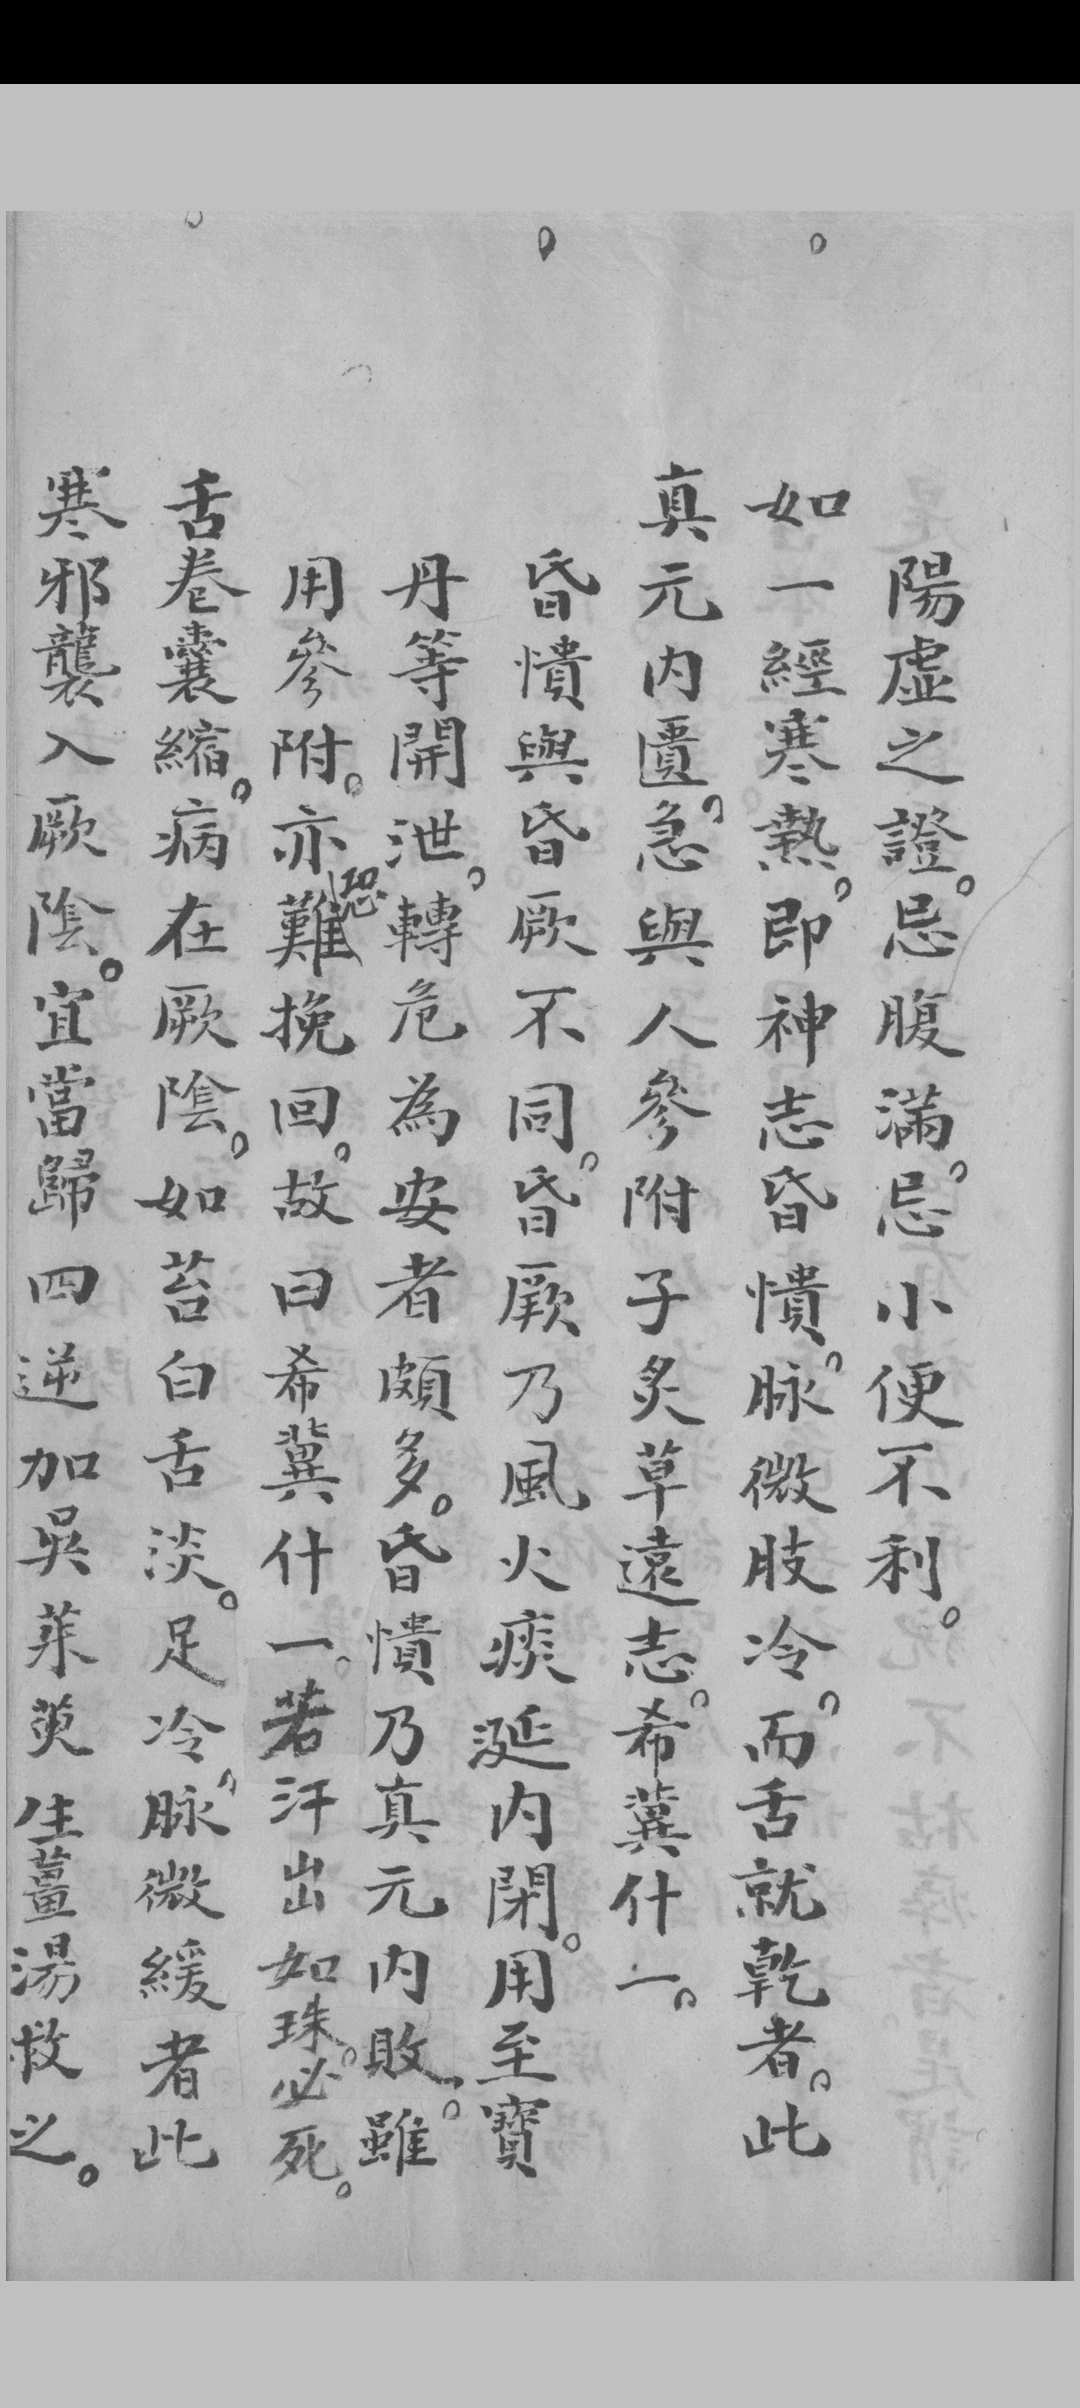 陽虛之證。忌腹滿。忌小便不利。
如一經寒熱。即神志昏憒。脉微肢冷。而舌就乾者。此
真元內匱。急與人參附子炙草遠志。希冀什一。
昏憒與昏厥不同。昏厥乃風火痰涎內閉。用至寶
丹等開泄。轉危為安者頗多。昏憒乃真元內敗。雖
用參附。亦恐難挽回。故曰希冀什一。若汗出如珠。必死。
舌卷囊縮。病在厥陰。如苔白舌淡。足冷。脉微緩者此
寒邪襲入厥陰。宜當歸四逆加吳茱萸生薑湯救之。